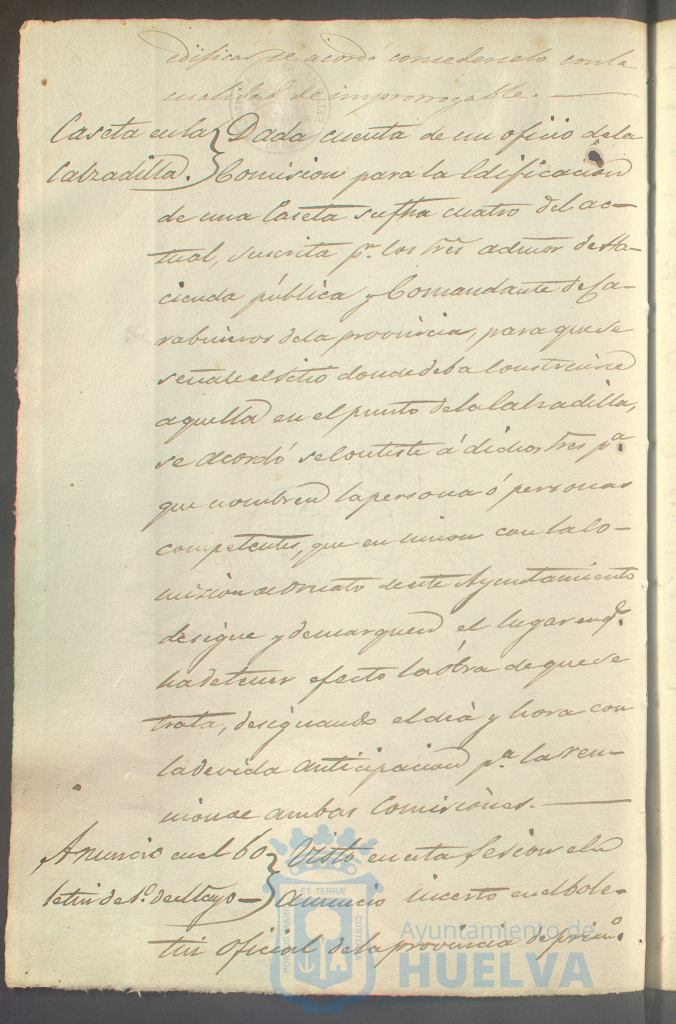 edificar se acordó concederselo con la
cualidad de improrrogable.
Caseta en la
Calzadilla.
Dada cuenta de un oficio de la
Comision para la Edificacion
de una Caseta su fha cuatro del ac-
tual, suscrita pr. los Sres admor de Ha-
cienda pública y Comandante de Ca-
rabineros de la provincia, para que se
señale el sitio donde deba construirse
aquella en el punto de la Calzadilla,
se acordó se conteste á dichos Sres pa.
que nombren la persona ó personas
competentes, que en union con la Co-
mision de Ornato de este Ayuntamiento
designe y demarquen el lugar en q.
ha de tener efecto la óbra de que se
trata, designando el dia y hora con
la devida anticipacion pa. la reu-
nion de ambas Comisiònes.
Anuncio en el Bo
letin de 1º. de Mayo
Visto en esta Sesion el
Anuncio incerto en el bole-
tin Oficial de la provincia de prim.o
PORTUS MARIS ET TERRÆ CUSTODIA
Ayuntamiento de
HUELVA